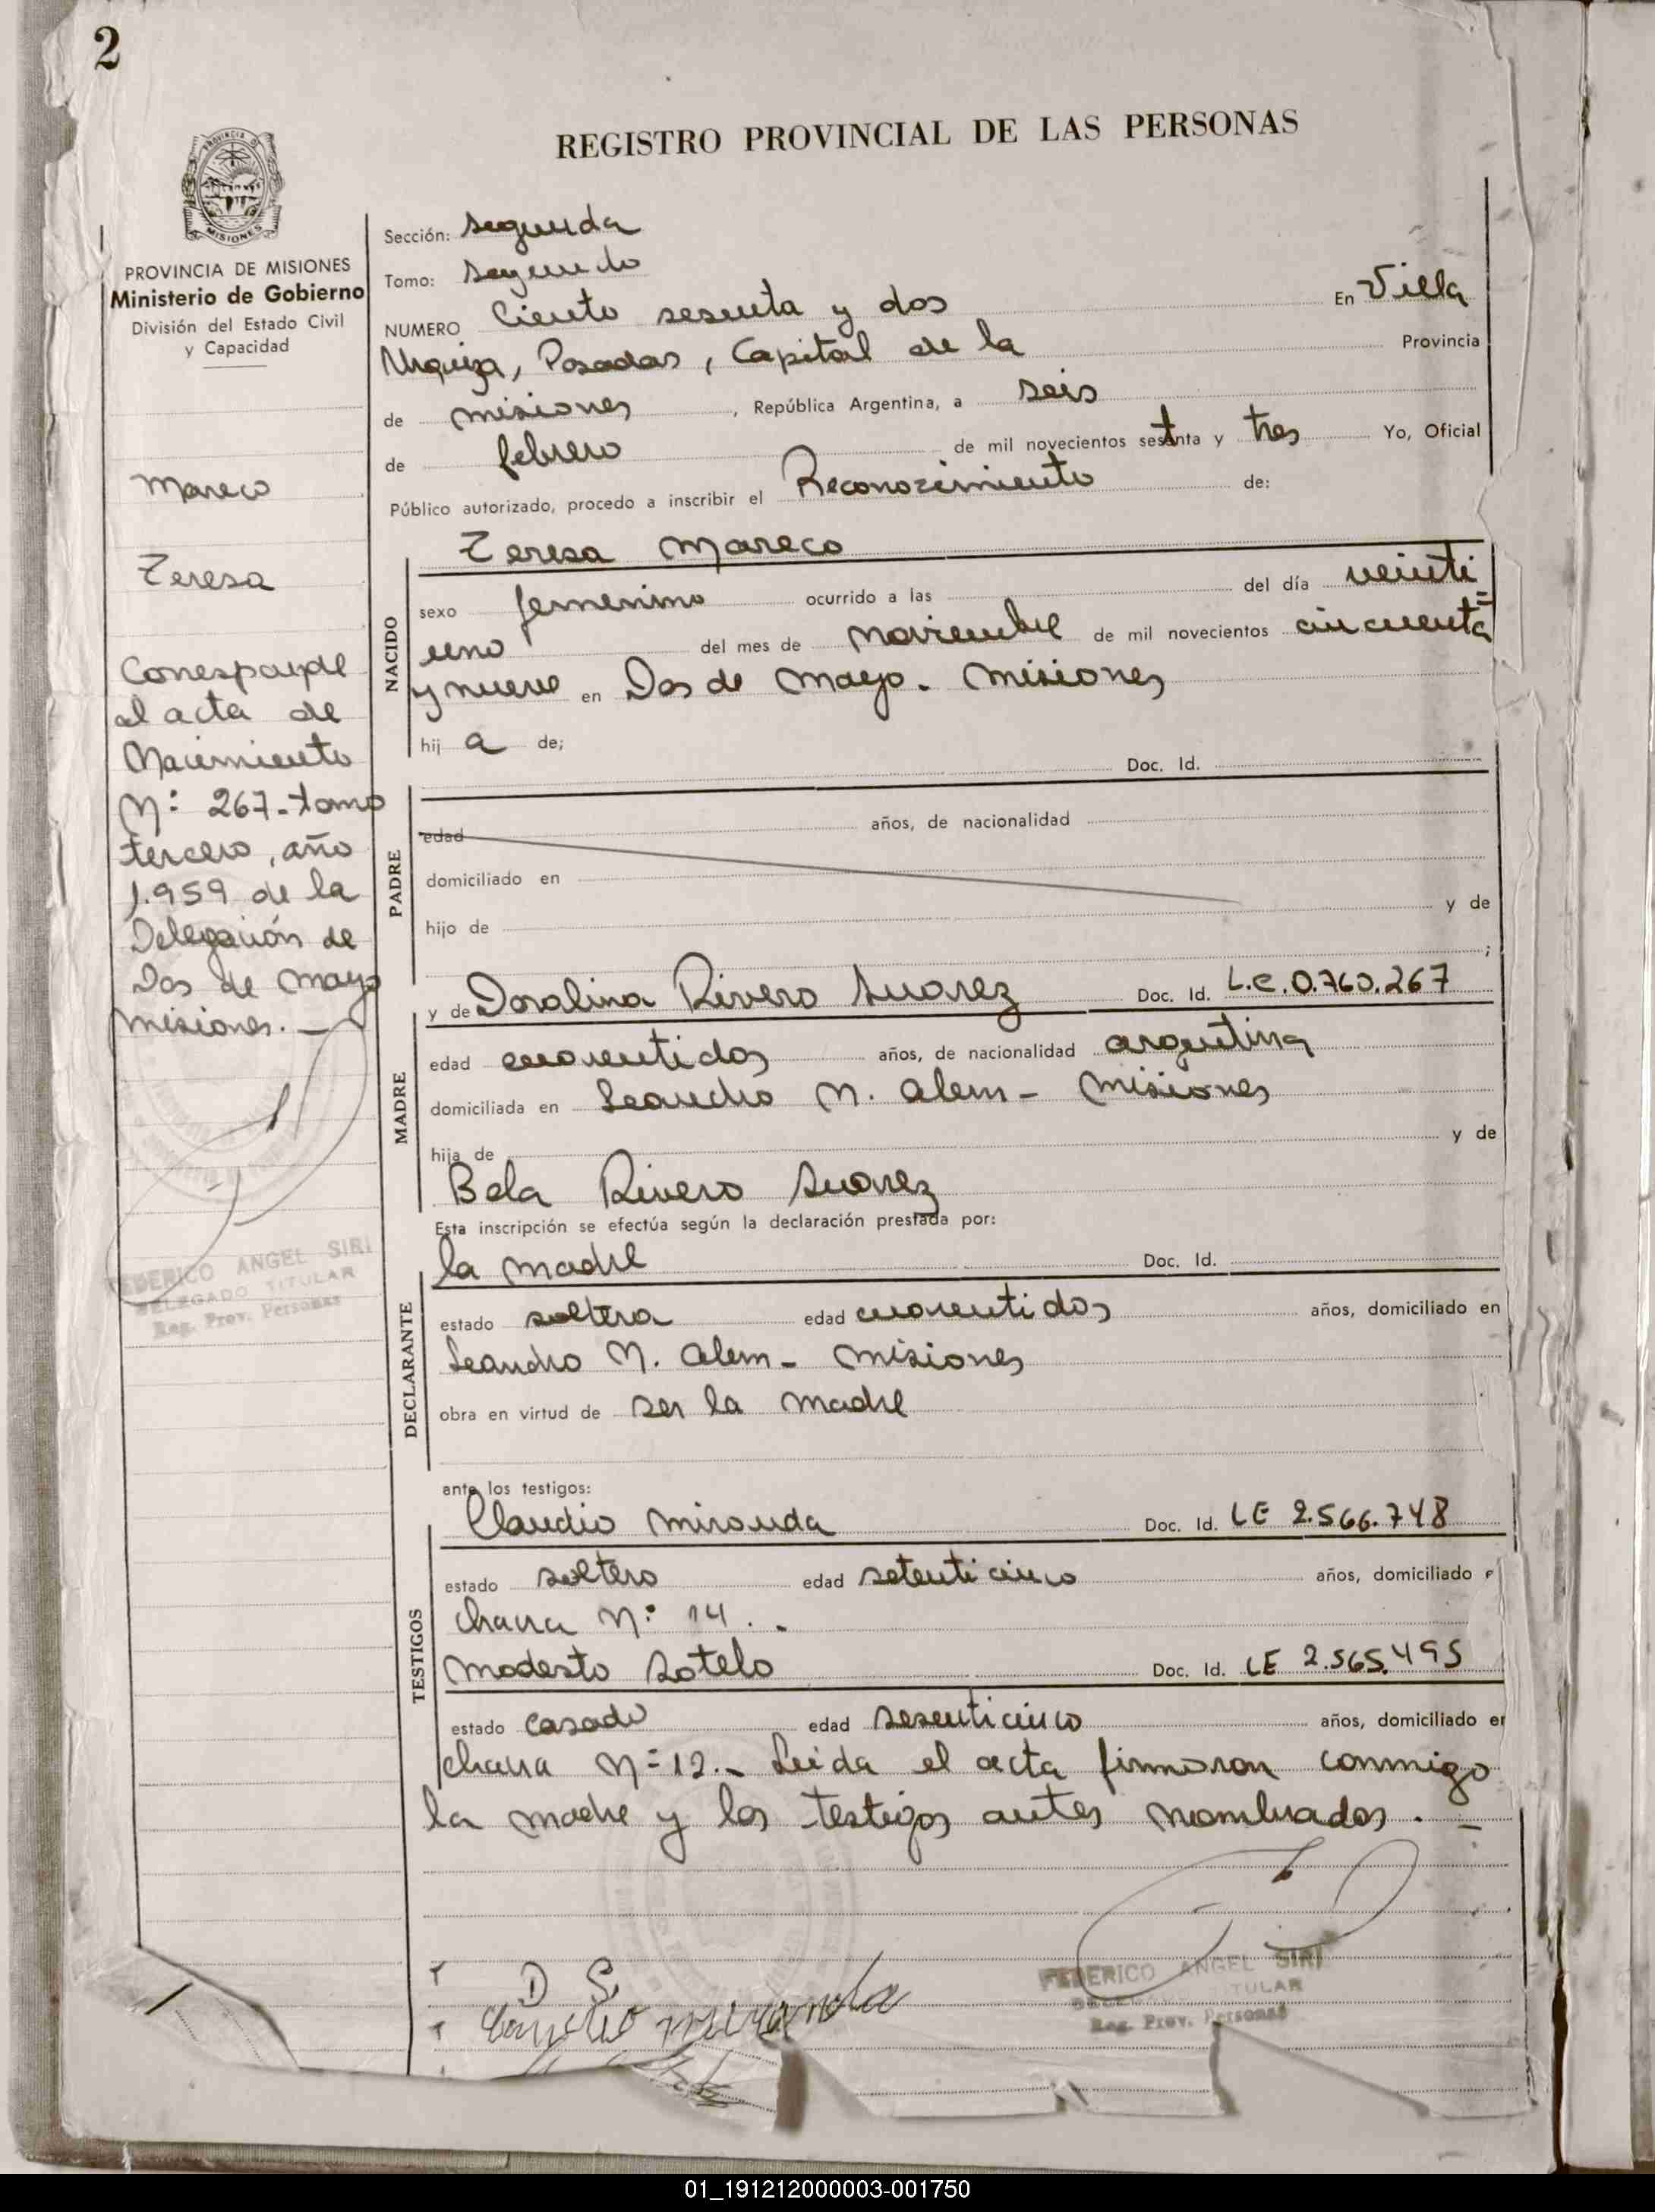 2
REGISTRO PROVINCIAL DE LAS PERSONAS
PROVINCIA
MISIONES
PROVINCIA DE MISIONES
Ministerio de Gobierno
División del Estado Civil
y Capacidad
Mareco
Teresa
Corresponde
al acta de
Nacimiento
N: 267-tomo
tercero, año
1.959 de la
Delegación de
Dos de Mayo
Misiones. —
FEDERICO ANGEL SIRI
DELEGADO TITULAR
Reg. Prov. Personas
Sección: segunda
Tomo: segundo
NUMERO Ciento sesenta y dos En Villa
Urquiza, Posadas, Capital de la Provincia
de misiones, República Argentina, a seis
de febrero de mil novecientos setenta y tres Yo, Oficial
Público autorizado, procedo a inscribir el Reconozimiento de:
NACIDO
Teresa Mareco
sexo femenino ocurrido a las del día veinti=
uno del mes de noviembre de mil novecientos cincuenta
y nueve en Dos de Mayo. Misiones
hij a de;
PADRE
Doc. Id.
edad años, de nacionalidad
domiciliado en
hijo de y de
;
MADRE
y de Doralina Rivero Suarez Doc. Id. L.C.0.760.267
edad cuarentidos años, de nacionalidad argentina
domiciliada en Leandro N. Alem - Misiones
hija de y de
Bela Rivero Suarez
Esta inscripción se efectúa según la declaración prestada por:
DECLARANTE
la madre Doc. Id.
estado soltera edad cuarentidos años, domiciliado en
Leandro N. Alem - Misiones
obra en virtud de ser la madre
ante los testigos:
TESTIGOS
Claudio Miranda Doc. Id. LE 2.566.748
estado soltero edad setenticinco años, domiciliado e
chacra N: 14.-
Modesto Sotelo Doc. Id. LE 2.565.495
estado casado edad sesenticinco años, domiciliado en
chacra N=12.- Leida el acta firmaron conmigo
la madre y los testigos antes nombrados. —
D S
Claudio miranda
FEDERICO ANGEL SIRI
DELEGADO TITULAR
Reg. Prov. Personas
01_191212000003-001750